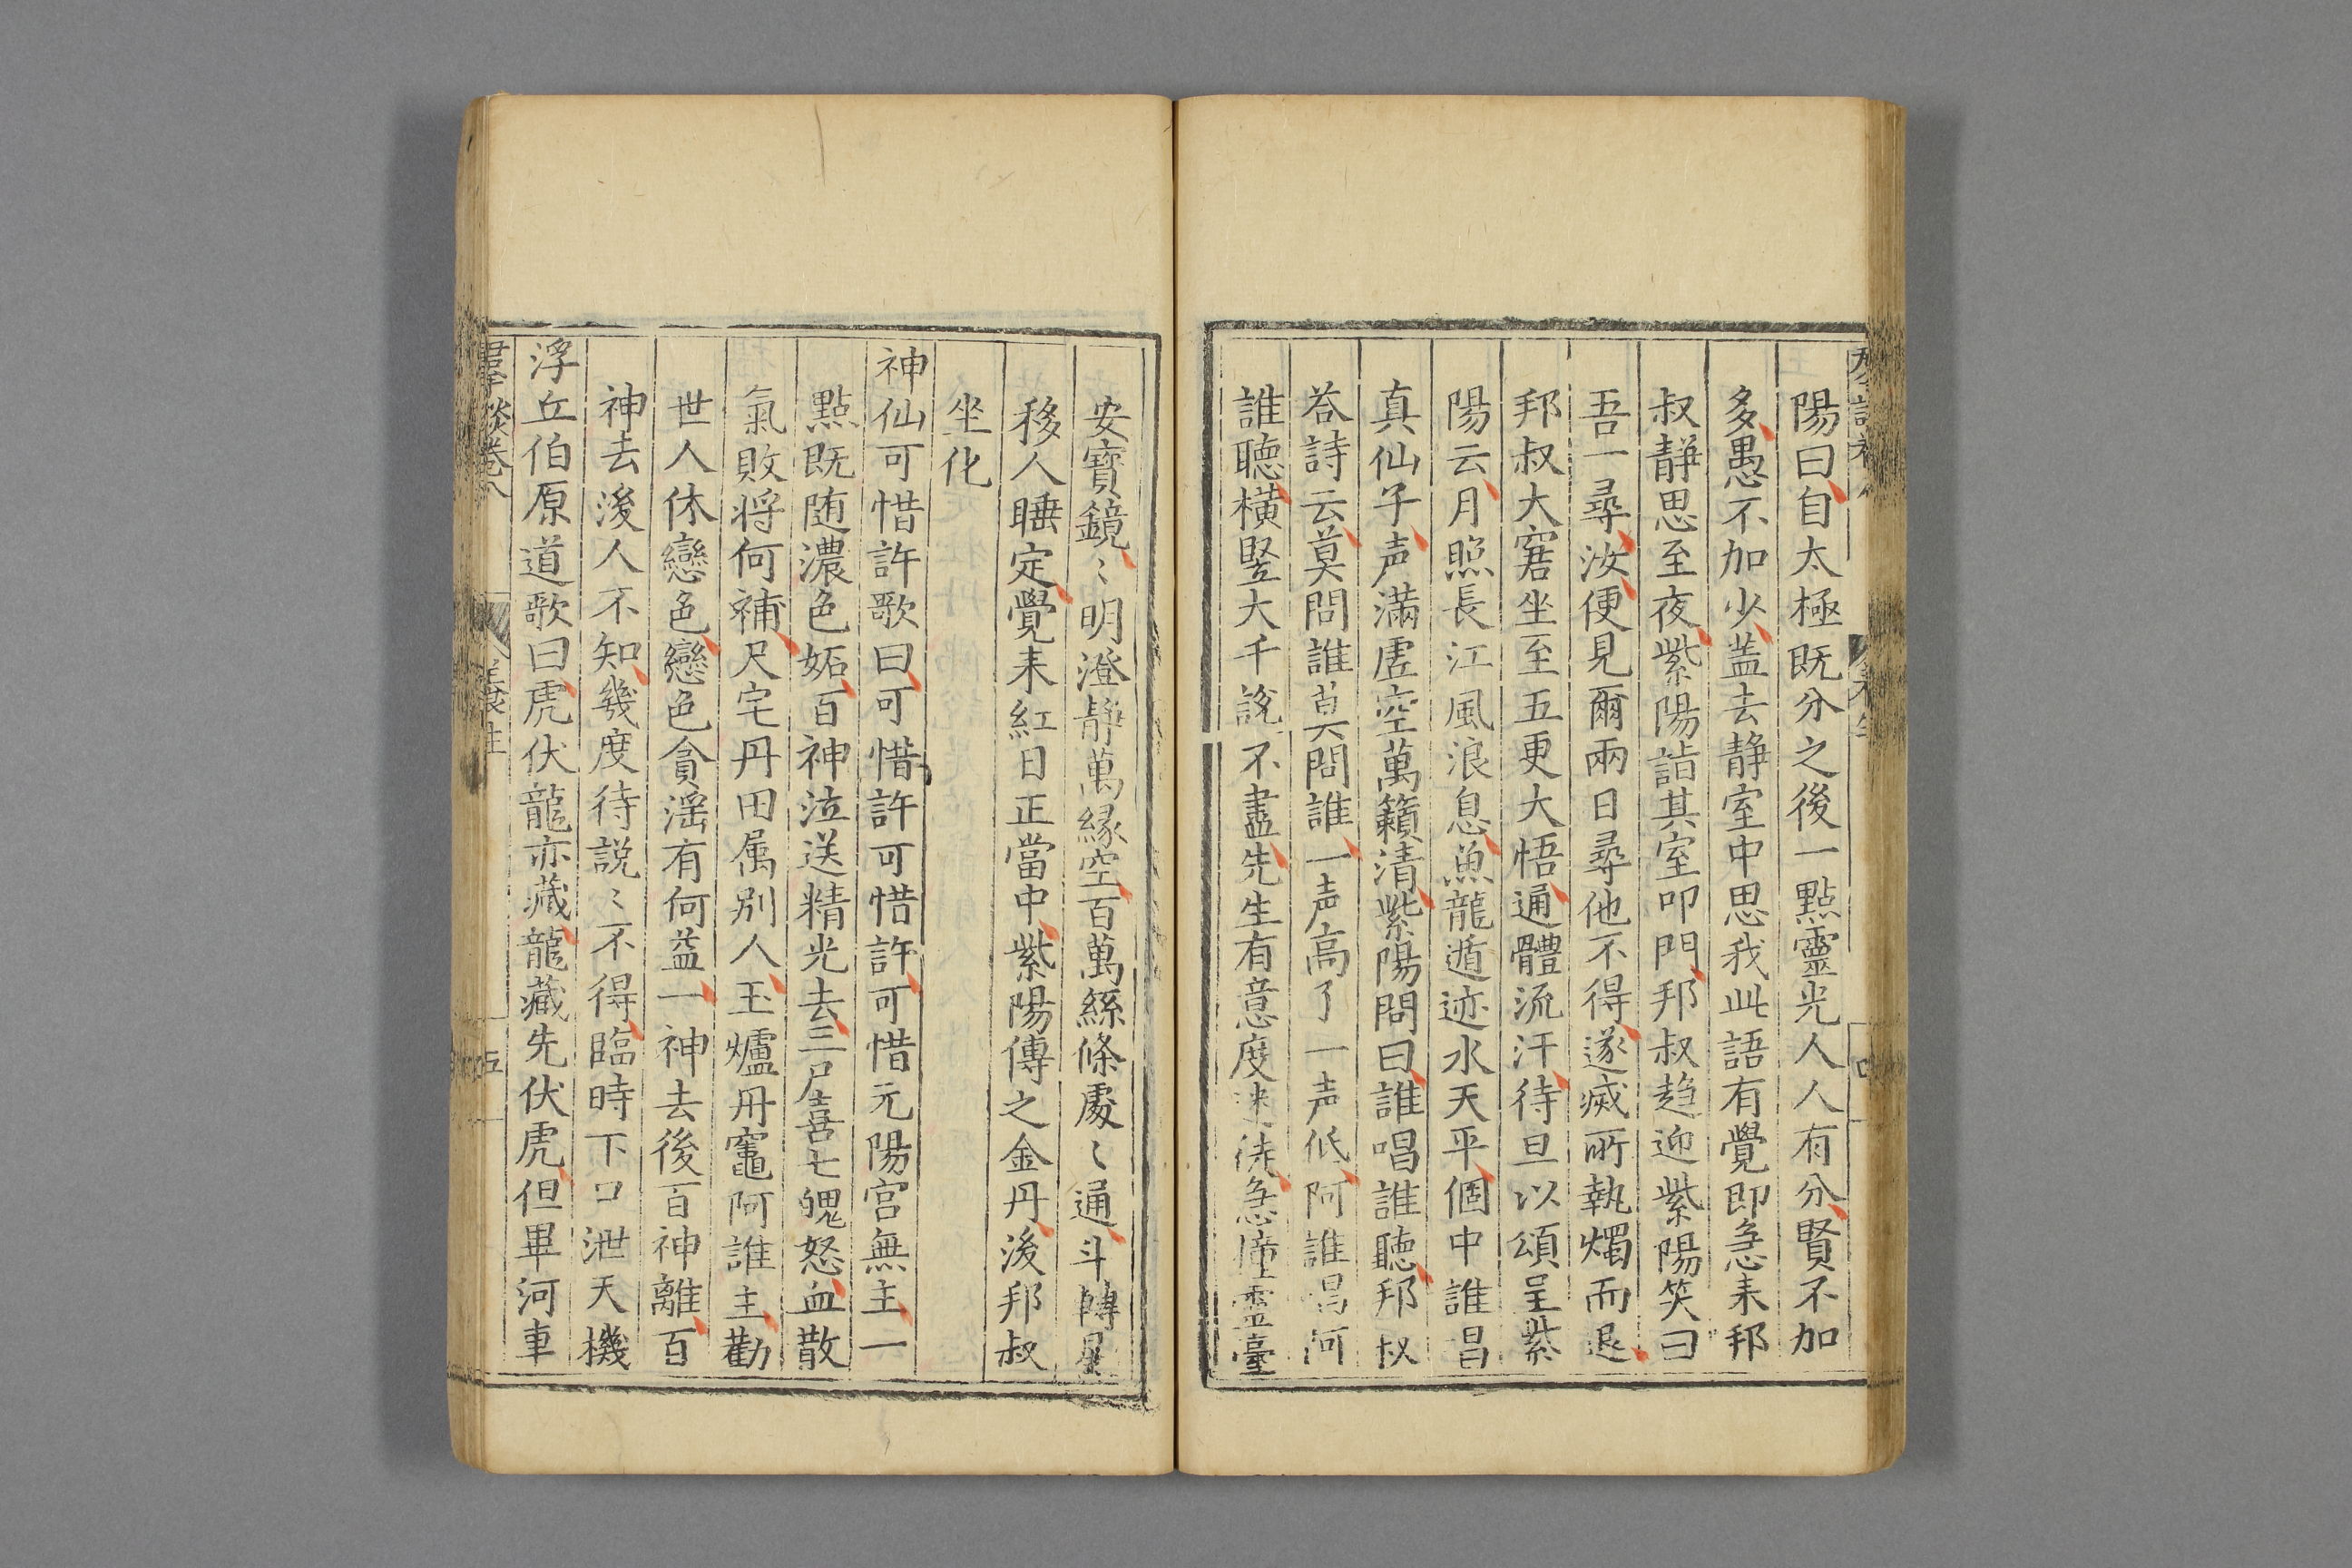 陽曰自太極既分之後一點靈光人人有分賢不加
多愚不加少盖去静室中思我此語有覺即急来邦
叔静思至夜紫陽詣其室叩門邦叔趋迎紫陽笑曰
吾一尋汝便見爾兩日尋他不得遂滅所執燭而退
邦叔大窘坐至五更大悟通體流汗待旦以頌呈紫
陽云月照長江風浪息魚龍遁迹水天平個中誰唱
真仙子声滿虚空萬籟清紫陽問曰誰唱誰聽邦叔
答詩云莫問誰莫問誰一声高了一声低阿誰唱阿
誰聽橫竪大千說不盡先生有意度迷徒急撞靈臺
安寶鏡〻明澄靜萬緣空百萬絲條處〻通斗轉星
移人睡定覺来紅日正當中紫陽傳之金丹後邦叔
坐化
神仙可惜許歌曰可惜許可惜許可惜元陽宮無主一
點既随濃色妬百神泣送精光去三尸喜七魄怒血散
氣敗將何補尺宅丹田属別人玉爐丹竈阿誰主勸
世人休戀色戀色貪滛有何益一神去後百神離百
神去後人不知幾度待説〻不得臨時下口泄天機
浮丘伯原道歌曰虎伏龍亦藏龍藏先伏虎但畢河車
卷八
五